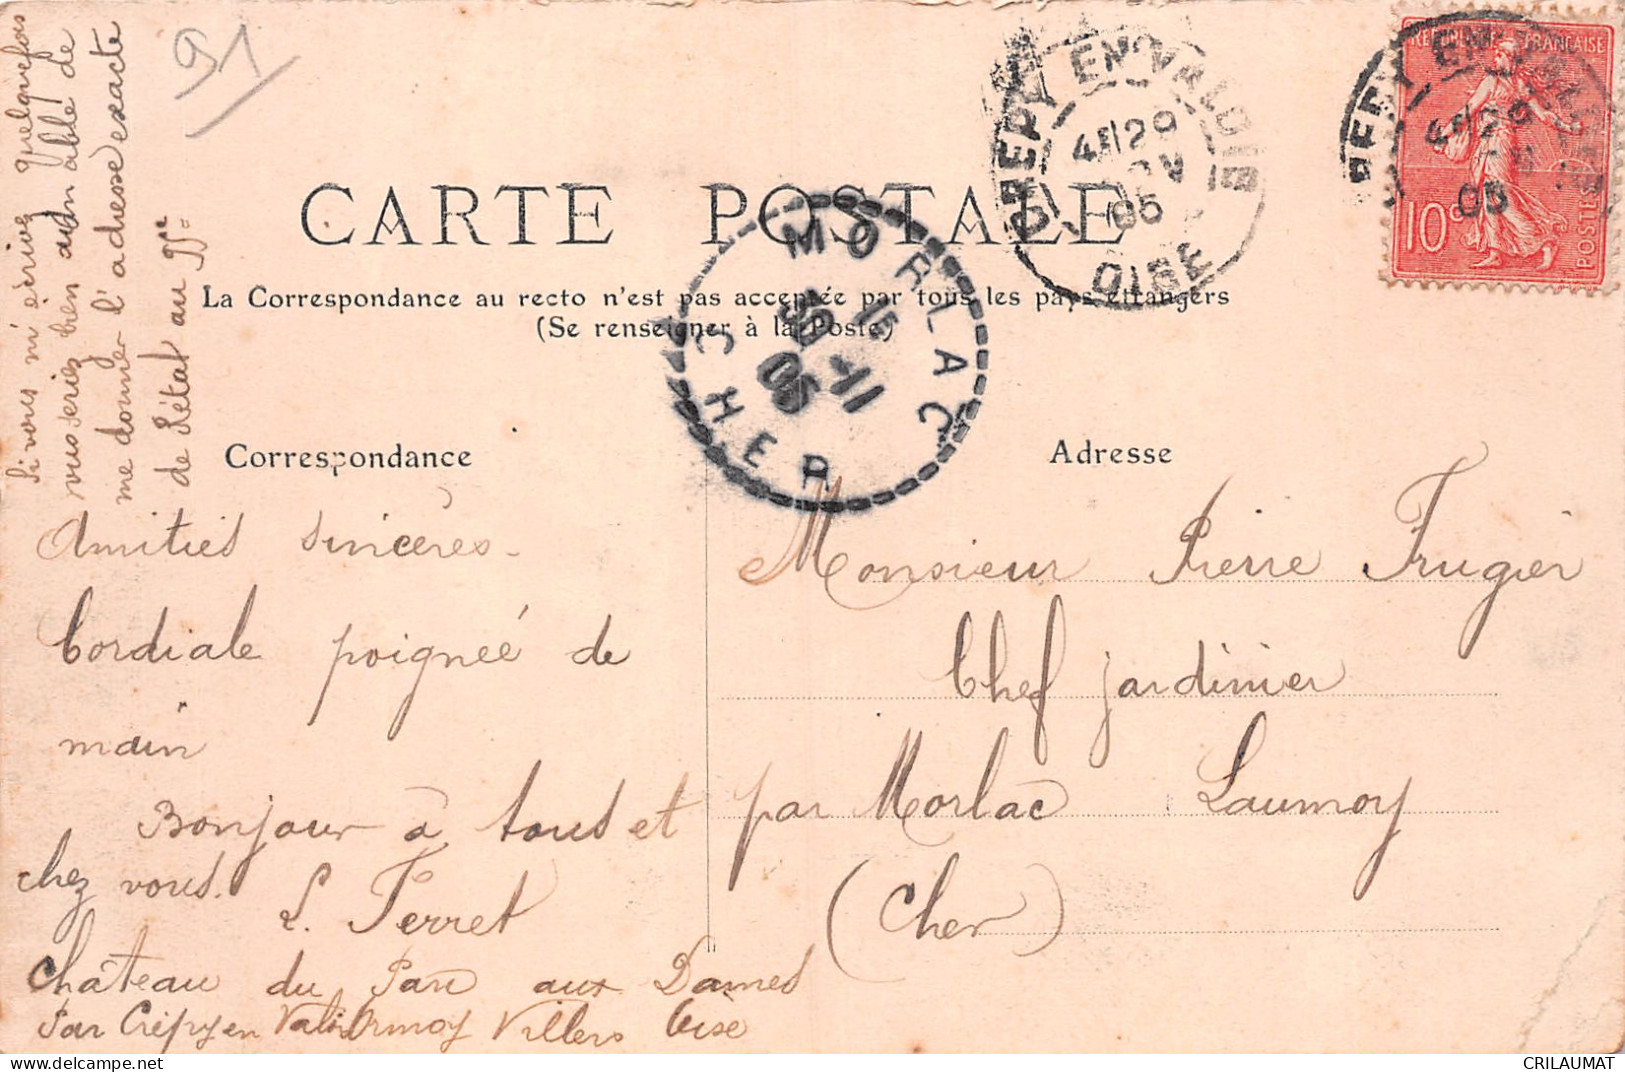 91
Si vous m'écrivez quelquefois
vous seriez bien aimable de
me donner l'adresse exacte
de l'état au
CARTE POSTALE
La Correspondance au recto n'est pas acceptée par tous les pays étrangers
(Se renseigner à la Poste)
CREPY EN VALOIS
4E 29
NOV
05
OISE
REPUBLIQUE FRANÇAISE
10c
POSTES
CREPY EN VALOIS
4E 29
05
MORLAC
15
30 -11
05
CHER
Correspondance
Adresse
Amitiés sincères.
Cordiale poignée de
main
Bonjour à tous et
chez vous.
L. Ferret
Château du Parc aux Dames
Par Crépy en Valois Ormoy Villers Oise
Monsieur Pierre Frugier
Chef jardinier
par Morlac Laumoy
(Cher)
CRILAUMAT